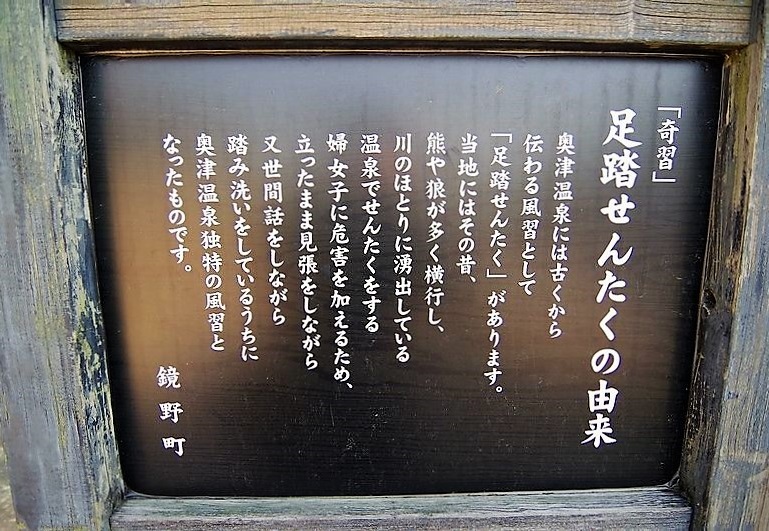 「奇習」
足踏せんたくの由来
奥津温泉には古くから
伝わる風習として
「足踏せんたく」があります。
当地にはその昔、
熊や狼が多く横行し、
川のほとりに湧出している
温泉でせんたくをする
婦女子に危害を加えるため、
立ったまま見張をしながら
又世間話をしながら
踏み洗いをしているうちに
奥津温泉独特の風習と
なったものです。
鏡野町